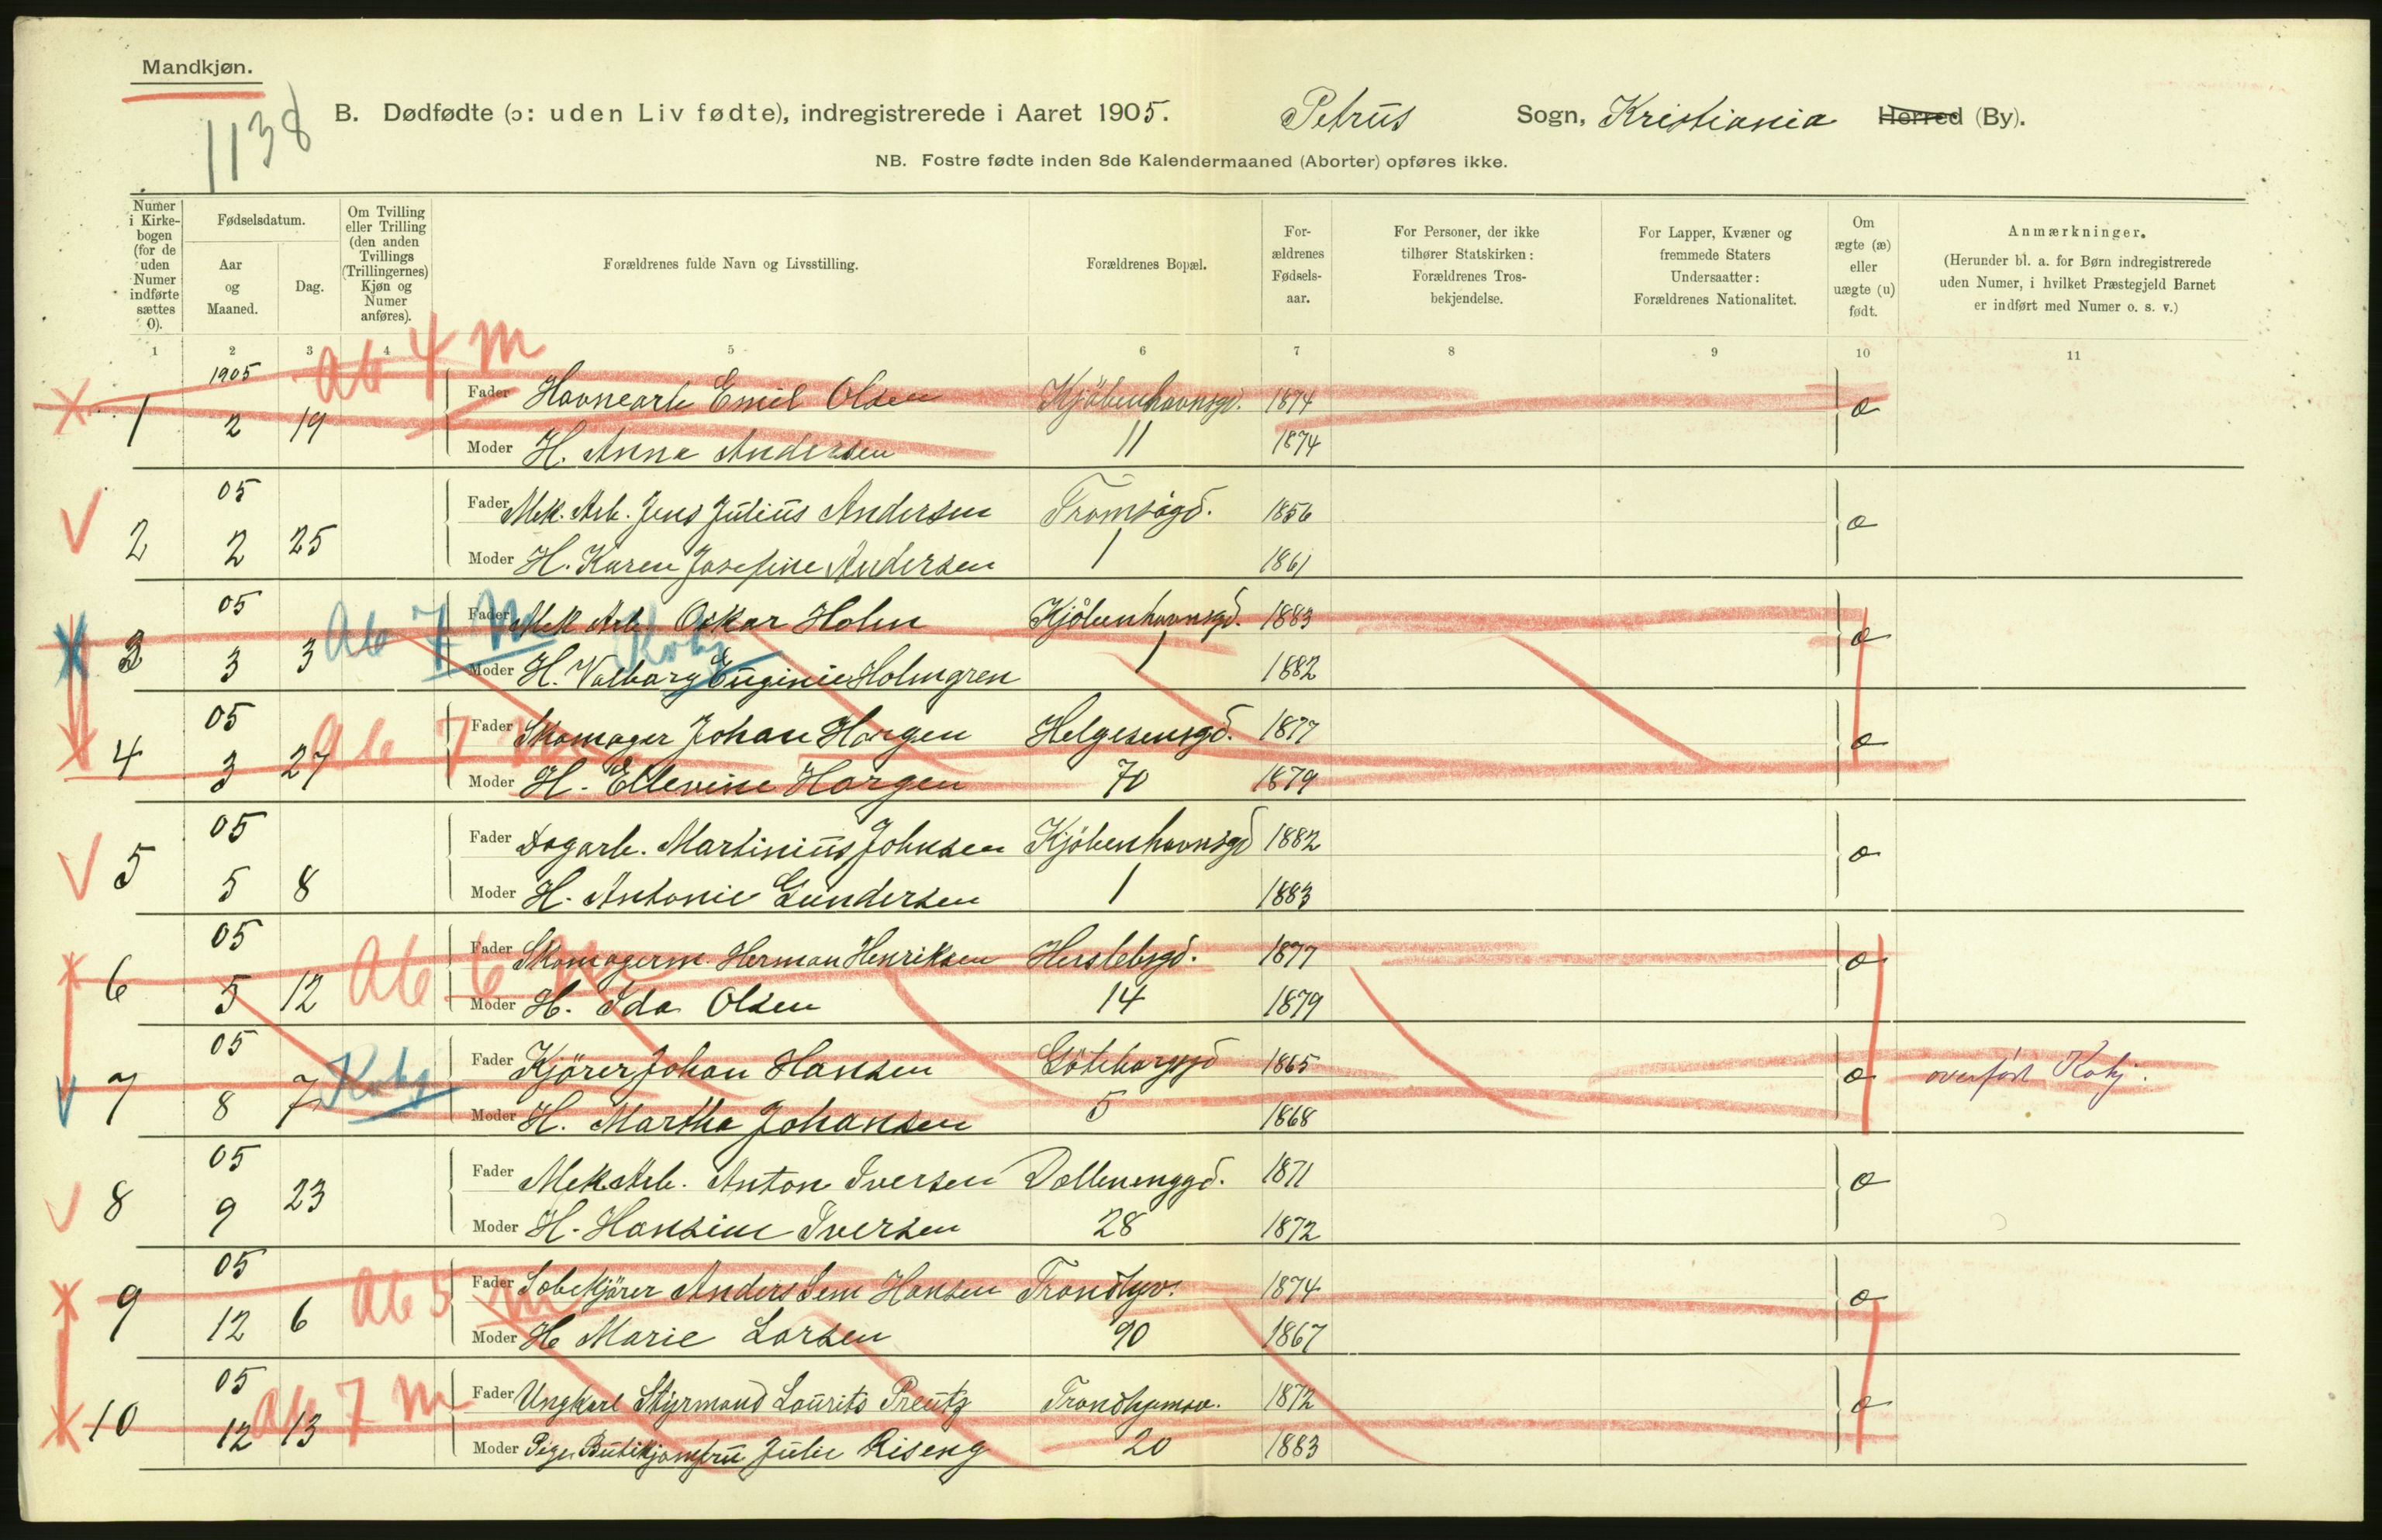 Mandkjøn.
1138
B. Dødfødte (ɔ: uden Liv fødte), indregistrerede i Aaret 1905. Petrus Sogn, Kristiania Herred (By).
NB. Fostre fødte inden 8de Kalendermaaned (Aborter) opføres ikke.
Numer i Kirkebogen (for de uden Numer indførte sættes 0).
Fødselsdatum.
Aar og Maaned.
Dag.
Om Tvilling eller Trilling (den anden Tvillings (Trillingernes) Kjøn og Numer anføres).
Forældrenes fulde Navn og Livsstilling.
Forældrenes Bopæl.
Forældrenes Fødselsaar.
For Personer, der ikke tilhører Statskirken: Forældrenes Trosbekjendelse.
For Lapper, Kvæner og fremmede Staters Undersaatter: Forældrenes Nationalitet.
Om ægte (æ) eller uægte (u) født.
Anmærkninger.
(Herunder bl. a. for Børn indregistrerede uden Numer, i hvilket Præstegjeld Barnet er indført med Numer o. s. v.)
1 2 3 4 5 6 7 8 9 10 11
1905 Ab 4 m
Fader Havnearb Emil Olsen Kjöbenhavnsgd. 1874 æ
1 2 19
Moder H. Anna Andersen 11 1874
05 Fader Mek. Arb. Jens Julius Andersen Tromsøgd. 1856 æ
2 2 25 Moder H. Karen Josefine Andersen 1 1861
05 Ab 7 m Fader Mek Arb Oskar Holm Kjöbenhavnsgd. 1883 æ
3 3 3 Moder H. Valborg Euginie Holmgren 1 1882
05 Ab 7 m Fader Skomager Johan Horgen Helgesensgd. 1877 æ
4 3 27 Moder H. Ellevine Horgen 70 1879
05 Fader Dagarb. Martinius Johnsen Kjöbenhavnsgd 1882 æ
5 5 8 Moder H. Antonie Gundersen 1 1883
05 Ab 6 m Fader Skomagerm Herman Henriksen Herslebsgd. 1877 æ
6 5 12 Moder H. Ida Olsen 14 1879
05 Fader Kjörer Johan Hansen Göteborggd 1865 æ overført
7 8 7 Moder H. Martha Johansen 5 1868
05 Fader Mek Arb. Anton Iversen Dællenenggd. 1871 æ
8 9 23 Moder H. Hansine Iversen 28 1872
05 Ab 5 m Fader Anders Sem Hansen Trondhjv. 1874 æ
9 12 6 Moder H Marie Larsen 90 1867
05 Ab 7 m Fader Ungkarl Styrmand Lourits Preutz Trondhjemsv. 1872 æ
10 12 13 Moder Pige Butikjomfru Julie Riseng 20 1883